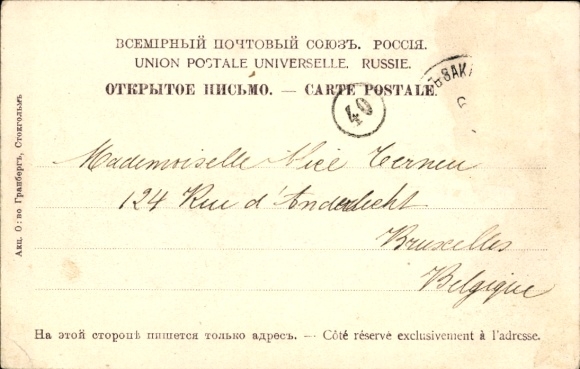 ВСЕМІРНЫЙ ПОЧТОВЫЙ СОЮЗЪ. РОССІЯ.
UNION POSTALE UNIVERSELLE. RUSSIE.
ОТКРЫТОЕ ПИСЬМО. — CARTE POSTALE.
40
Mademoiselle Alice
124 Rue d'Anderlecht
Bruxelles
Belgique
Акц. О:во Гранбергъ, Стокгольмъ
На этой сторонѣ пишется только адресъ. — Côté réservé exclusivement à l'adresse.